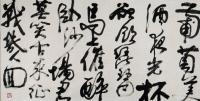 葡萄美
酒夜光杯
欲飲琵琶
馬上催醉
卧沙場君
莫笑古来征
戰幾人回